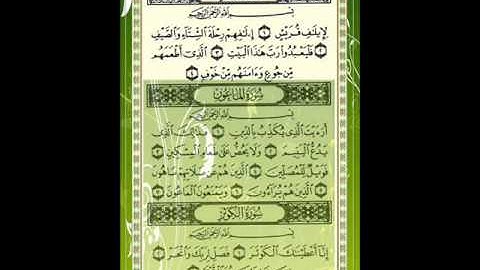 بِسْمِ اللَّهِ الرَّحْمَٰنِ الرَّحِيمِ
لِإِيلَٰفِ قُرَيْشٍ ١ إِۦلَٰفِهِمْ رِحْلَةَ الشِّتَآءِ وَالصَّيْفِ
٢ فَلْيَعْبُدُوا۟ رَبَّ هَٰذَا الْبَيْتِ ٣ الَّذِىٓ أَطْعَمَهُم
مِّن جُوعٍ وَءَامَنَهُم مِّنْ خَوْفٍۭ ٤
سُورَةُ الْمَاعُونِ
بِسْمِ اللَّهِ الرَّحْمَٰنِ الرَّحِيمِ
أَرَءَيْتَ الَّذِى يُكَذِّبُ بِالدِّينِ ١ فَذَٰلِكَ الَّذِى
يَدُعُّ الْيَتِيمَ ٢ وَلَا يَحُضُّ عَلَىٰ طَعَامِ الْمِسْكِينِ ٣
فَوَيْلٌ لِّلْمُصَلِّينَ ٤ الَّذِينَ هُمْ عَن صَلَاتِهِمْ سَاهُونَ
٥ الَّذِينَ هُمْ يُرَآءُونَ ٦ وَيَمْنَعُونَ الْمَاعُونَ ٧
سُورَةُ الْكَوْثَرِ
بِسْمِ اللَّهِ الرَّحْمَٰنِ الرَّحِيمِ
إِنَّآ أَعْطَيْنَٰكَ الْكَوْثَرَ ١ فَصَلِّ لِرَبِّكَ وَانْحَرْ ٢